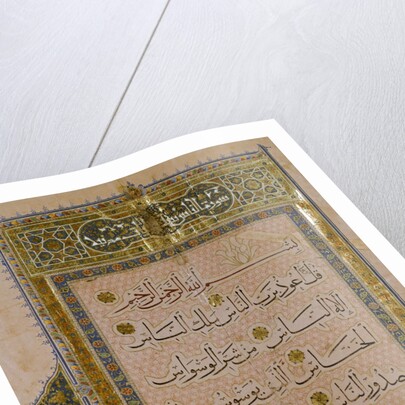 سورة الناس
بسم الله الرحمن الرحيم
قل اعوذ برب الناس ملك الناس
اله الناس من شر الوسواس
الخناس الذي يوسوس
صدور الناس